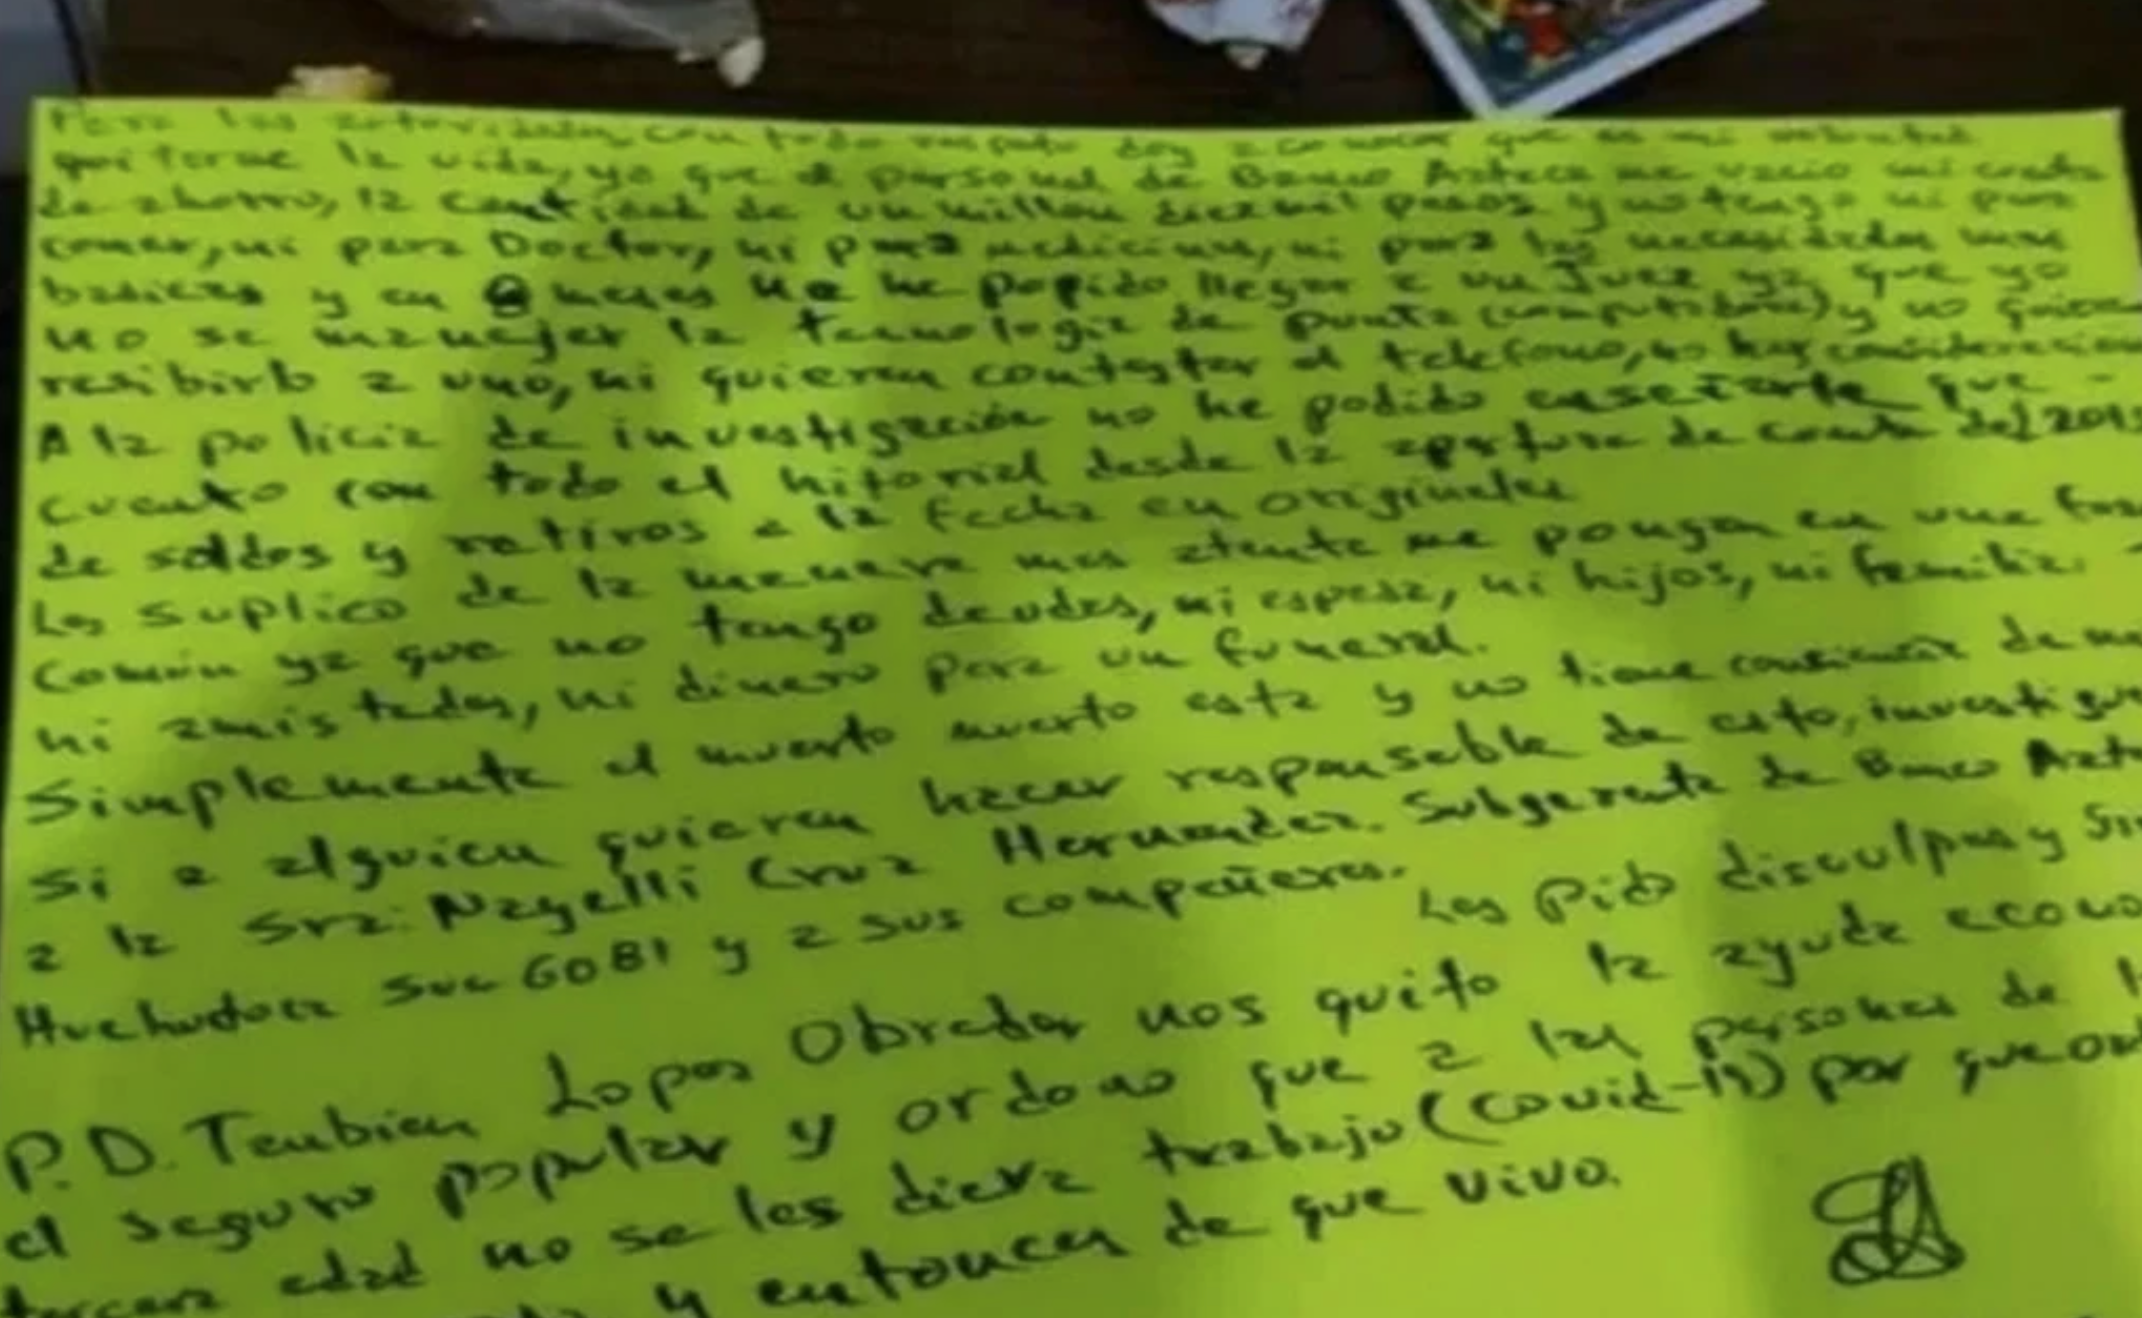 Para las autoridades, con todo respeto doy a conocer que es mi voluntad
quitarme la vida, ya que el personal de Banco Azteca me vacio mi cuenta
de ahorro, la cantidad de un millon diez mil pesos y no tengo ni para
comer, ni para Doctor, ni para medicinas, ni para las necesidades mas
basicas y en 8 meses no he popido llegar a un Juez ya que yo
no se manejar la tecnologia de punta (computadora) y no quieren
recibirlo a uno, ni quieren contestar el telefono, no hay consideracion
A la policia de investigación no he podido enseñarle que -
cuento con todo el hitorial desde la apertura de cuenta del
de saldos y retiros a la fecha en originales
Les suplico de la manera mas atenta me pongan en una
Común ya que no tengo deudos, ni esposa, ni hijos, ni familia.
ni amistades, ni dinero para un funeral.
Simplemente el muerto muerto esta y no tiene conciencia de
Si a alguien quieren hacer responsable de esto,
a la Sra: Nayelli Cruz Hernandez. Subgerente de Banco
Suc 6081 y a sus compañeros.
Les pido disculpas y
P.D. Tambien Lopes Obrador nos quito la ayuda
el seguro popular y ordeno que a las personas de
tercera edad no se les diera trabajo (Covid-19) por que
y entonces de que vivo.